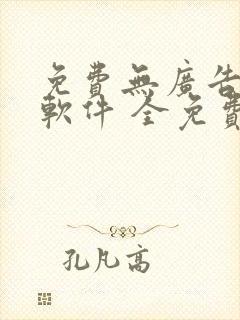 免費無廣告
軟件 全免費
孔凡高